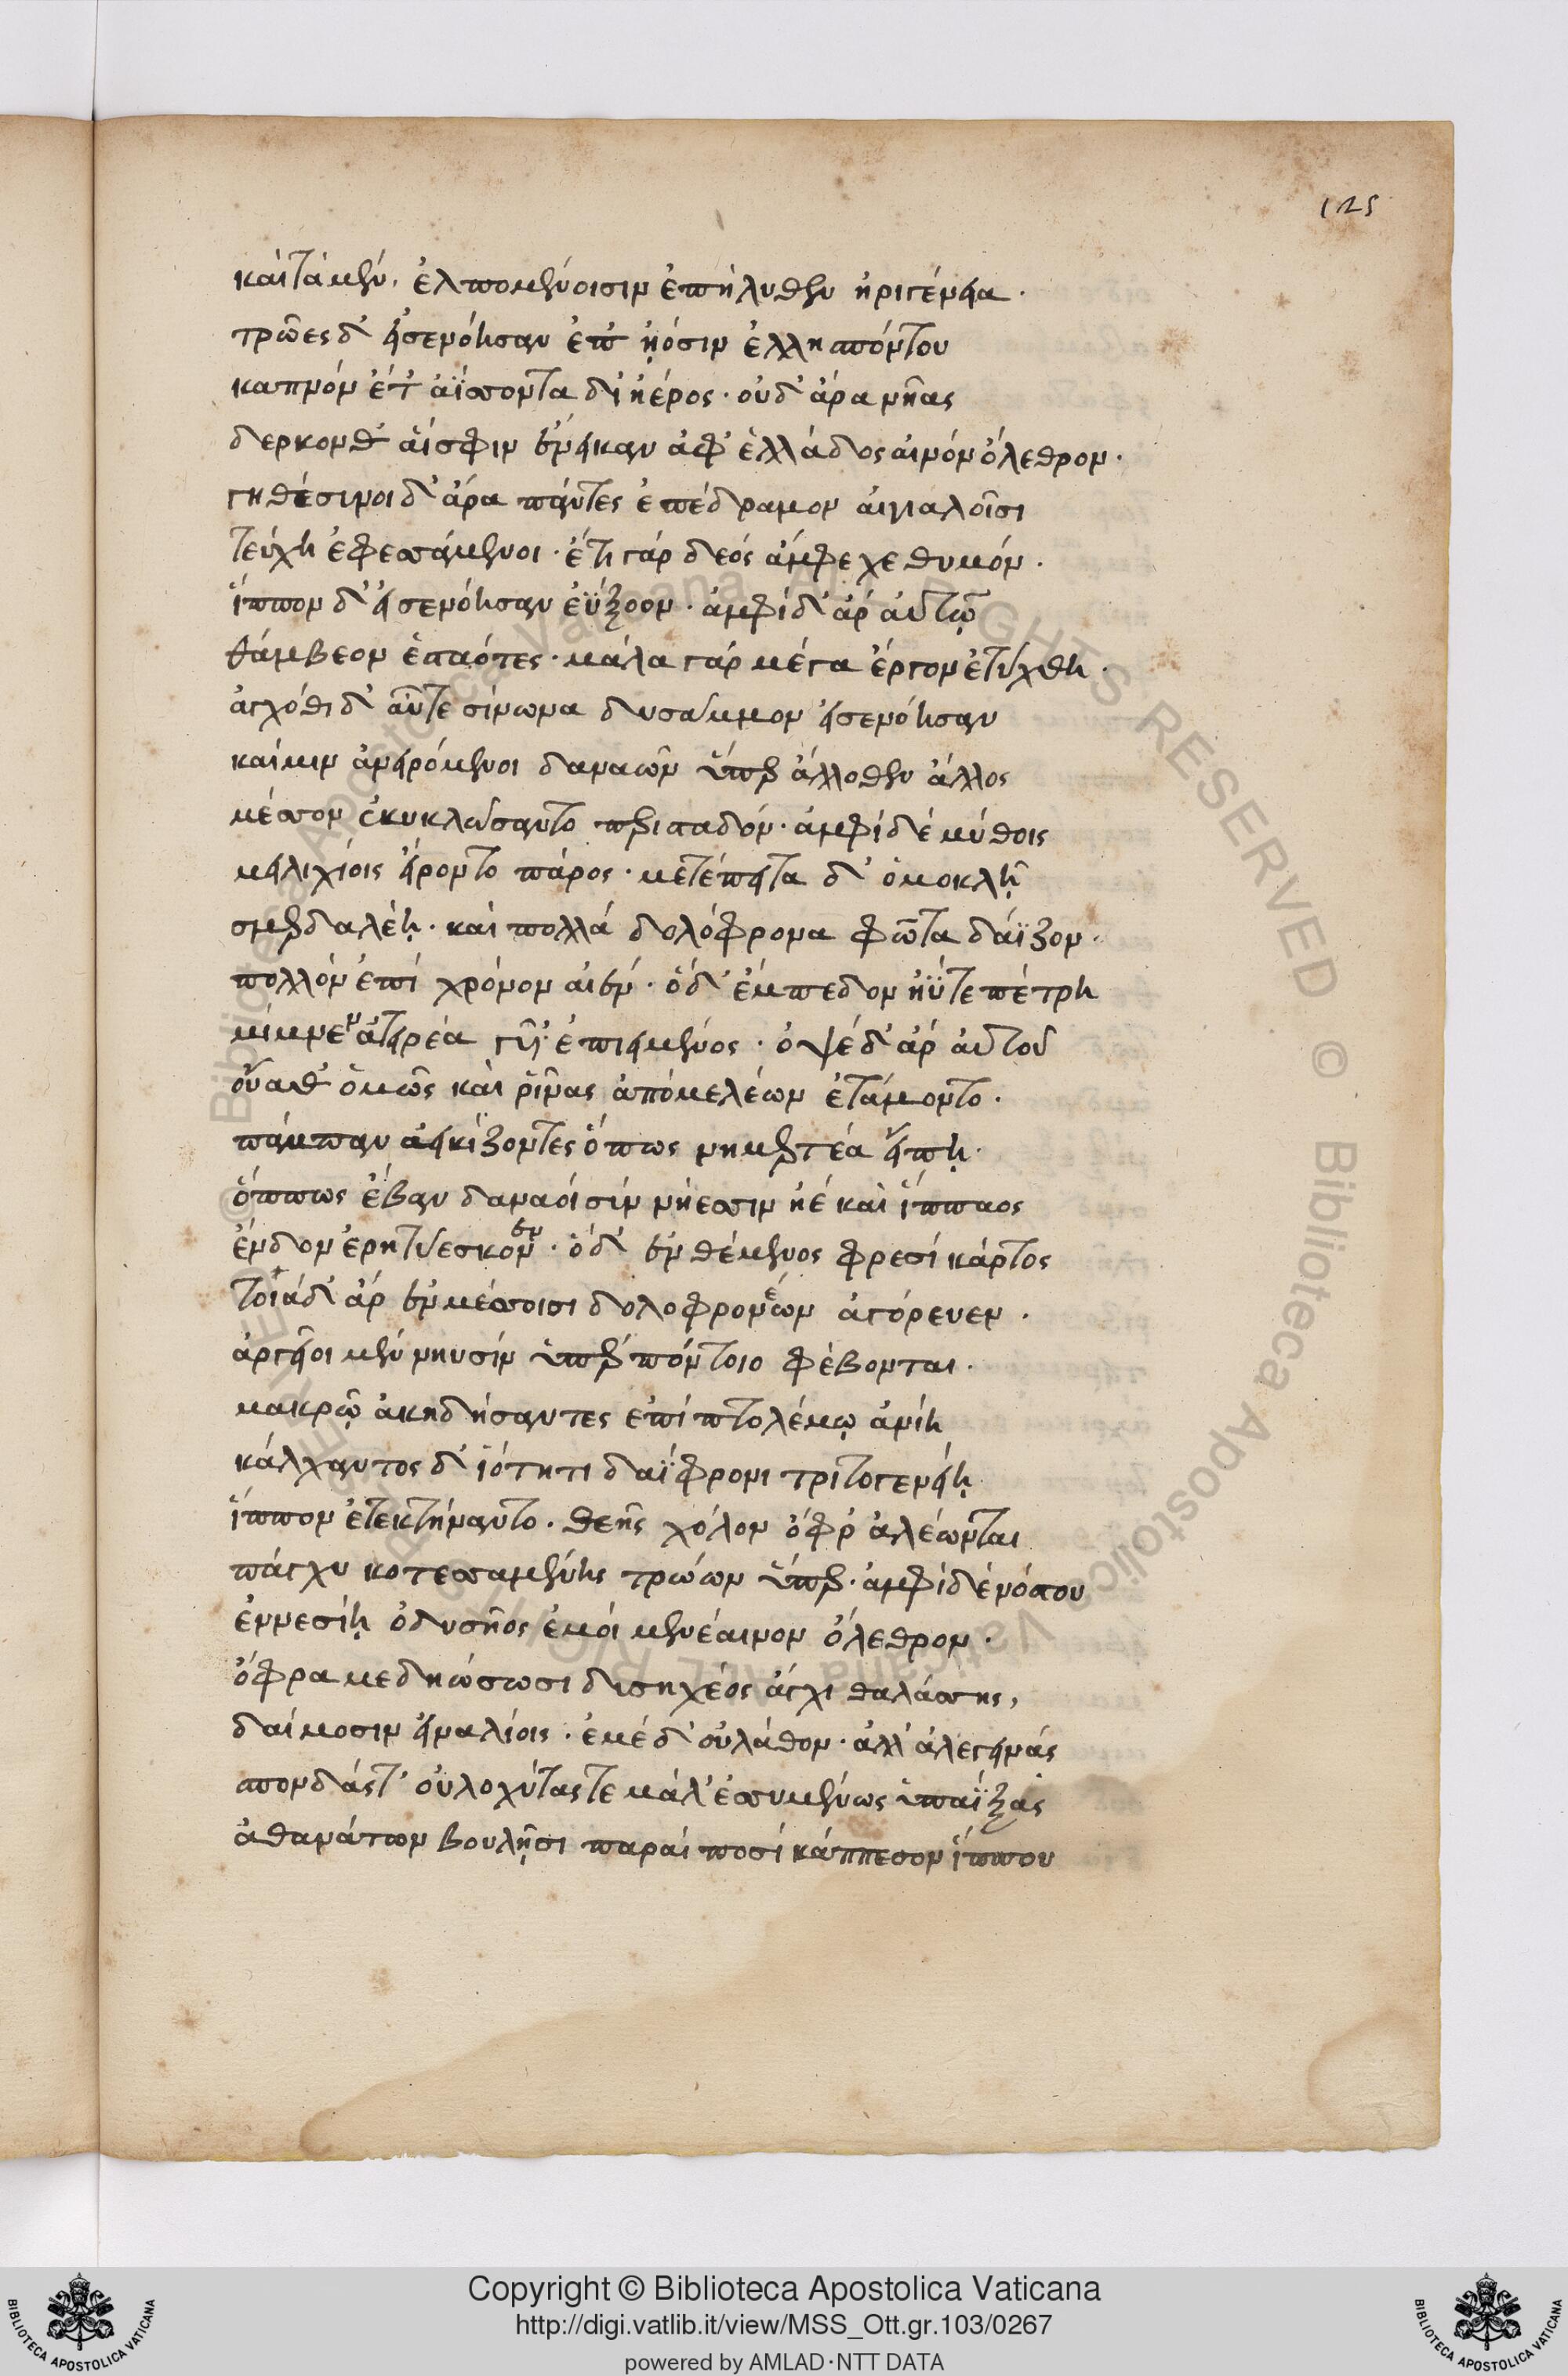 125
καὶ τὰ μὲν, ἐλπομένοισιν ἐπήλυθεν ἠριγένεια·
τρῶες δ' εἰσενόησαν ἐπ' ἠϊόσιν ἑλλησπόντου
καπνὸν ἔτ' ἀΐσσοντα δι' ἠέρος· οὐδ' ἄρα νῆας
δερκονθ' αἵ σφιν ἔνεικαν ἀφ' ἑλλάδος αἰνὸν ὄλεθρον·
γηθόσυνοι δ' ἄρα πάντες ἐπέδραμον αἰγιαλοῖσι
τεύχη ἐφεσσάμενοι· ἔτι γὰρ δέος ἄμφεχε θυμόν·
ἵππον δ' εἰσενόησαν ἐΰξοον· ἀμφὶ δ' ἄρ' αὐτῷ
θάμβεον ἑσταότες· μάλα γὰρ μέγα ἔργον ἐτύχθη·
ἀγχόθι δ' αὖτε σίνωνα δυσάμμορον εἰσενόησαν
καί μιν ἀνειρόμενοι δαναῶν ὕπερ ἄλλοθεν ἄλλος
μέσσον ἐκυκλώσαντο περισταδόν· ἀμφὶ δὲ μύθοις
μειλιχίοις εἴροντο πάρος· μετέπειτα δ' ὁμοκλῇ
σμερδαλέῃ· καὶ πολλὰ δολόφρονα φῶτα δάϊζον·
πολλὸν ἐπὶ χρόνον αἰέν· ὁ δ' ἔμπεδον ἠΰτε πέτρη
μίμνεν ἀτειρέα γυῖ' ἐπιειμένος· ὀψὲ δ' ἄρ' αὐτοῦ
οὔαθ' ὁμῶς καὶ ῥῖνας ἀπὸ μελέων ἐτάμοντο·
πάμπαν ἀεικίζοντες ὅπως νημερτέα εἴπῃ·
ὅππως ἔβαν δαναοὶ σὺν νήεσσιν ἠὲ καὶ ἵππος
ἔνδον ἐρητύεσκεν· ὁ δ' ἐνθέμενος φρεσὶ κάρτος
τοῖα δ' ἄρ' ἐν μέσσοισι δολοφρονέων ἀγόρευεν·
ἀργεῖοι μὲν νηυσὶν ὑπὲρ πόντοιο φέβονται·
μακρῷ ἀκηδήσαντες ἐπὶ πτολέμῳ ἀνίῃ
κάλχαντος δ' ἰότητι δαΐφρονι τριτογενείῃ
ἵππον ἐτεκτήναντο· θεῆς χόλον ὄφρ' ἀλέωνται
πάγχυ κοτεσσαμένης τρώων ὕπερ· ἀμφὶ δὲ νόστου
ἐννεσίῃ ὀδυσῆος ἐμοὶ μενέαινον ὄλεθρον·
ὄφρα με δηώσωσι δυσηχέος ἄγχι θαλάσσης,
δαίμοσιν εἰναλίοις· ἐμὲ δ' οὐ λάθον· ἀλλ' ἀλεγεινάς
σπονδάς τ' οὐλοχύτας τε μάλ' ἐσσυμένως ὑπαΐξας
ἀθανάτων βουλῇσι παραὶ ποσὶ κάππεσον ἵππου
Copyright © Biblioteca Apostolica Vaticana
http://digi.vatlib.it/view/MSS_Ott.gr.103/0267
powered by AMLAD·NTT DATA